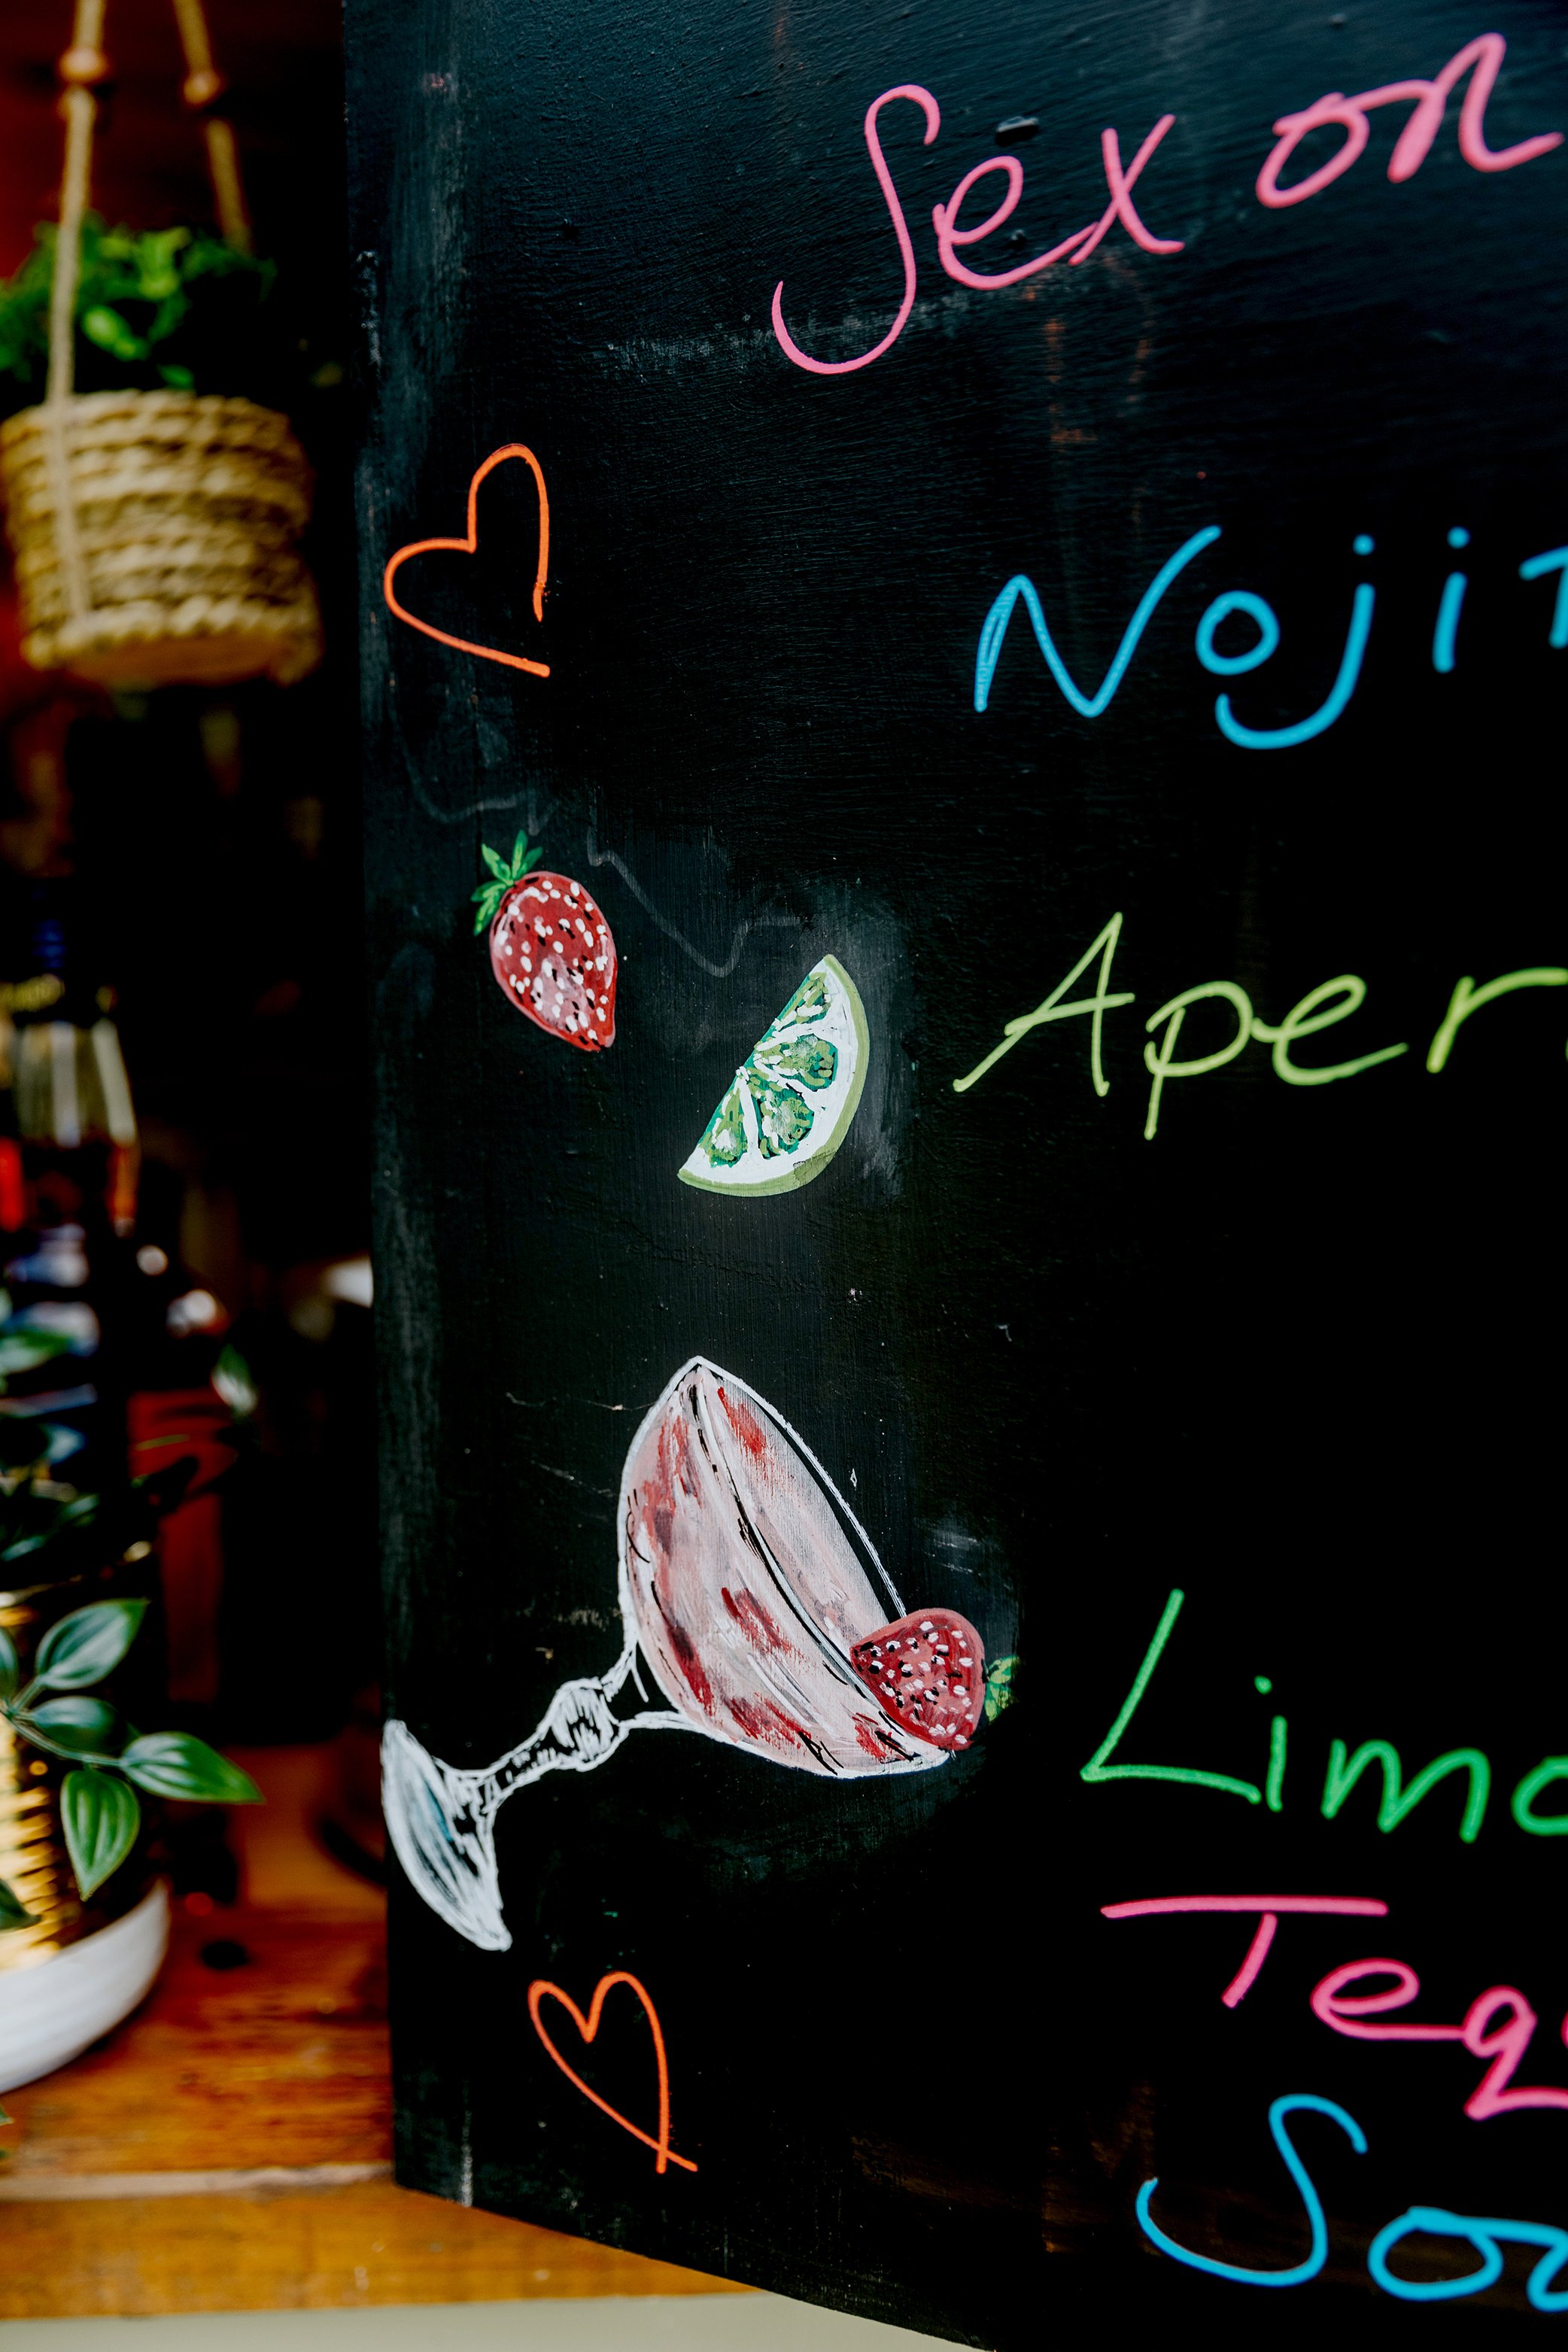 Sex on
Nojit
Aper
Limo
Teq
So